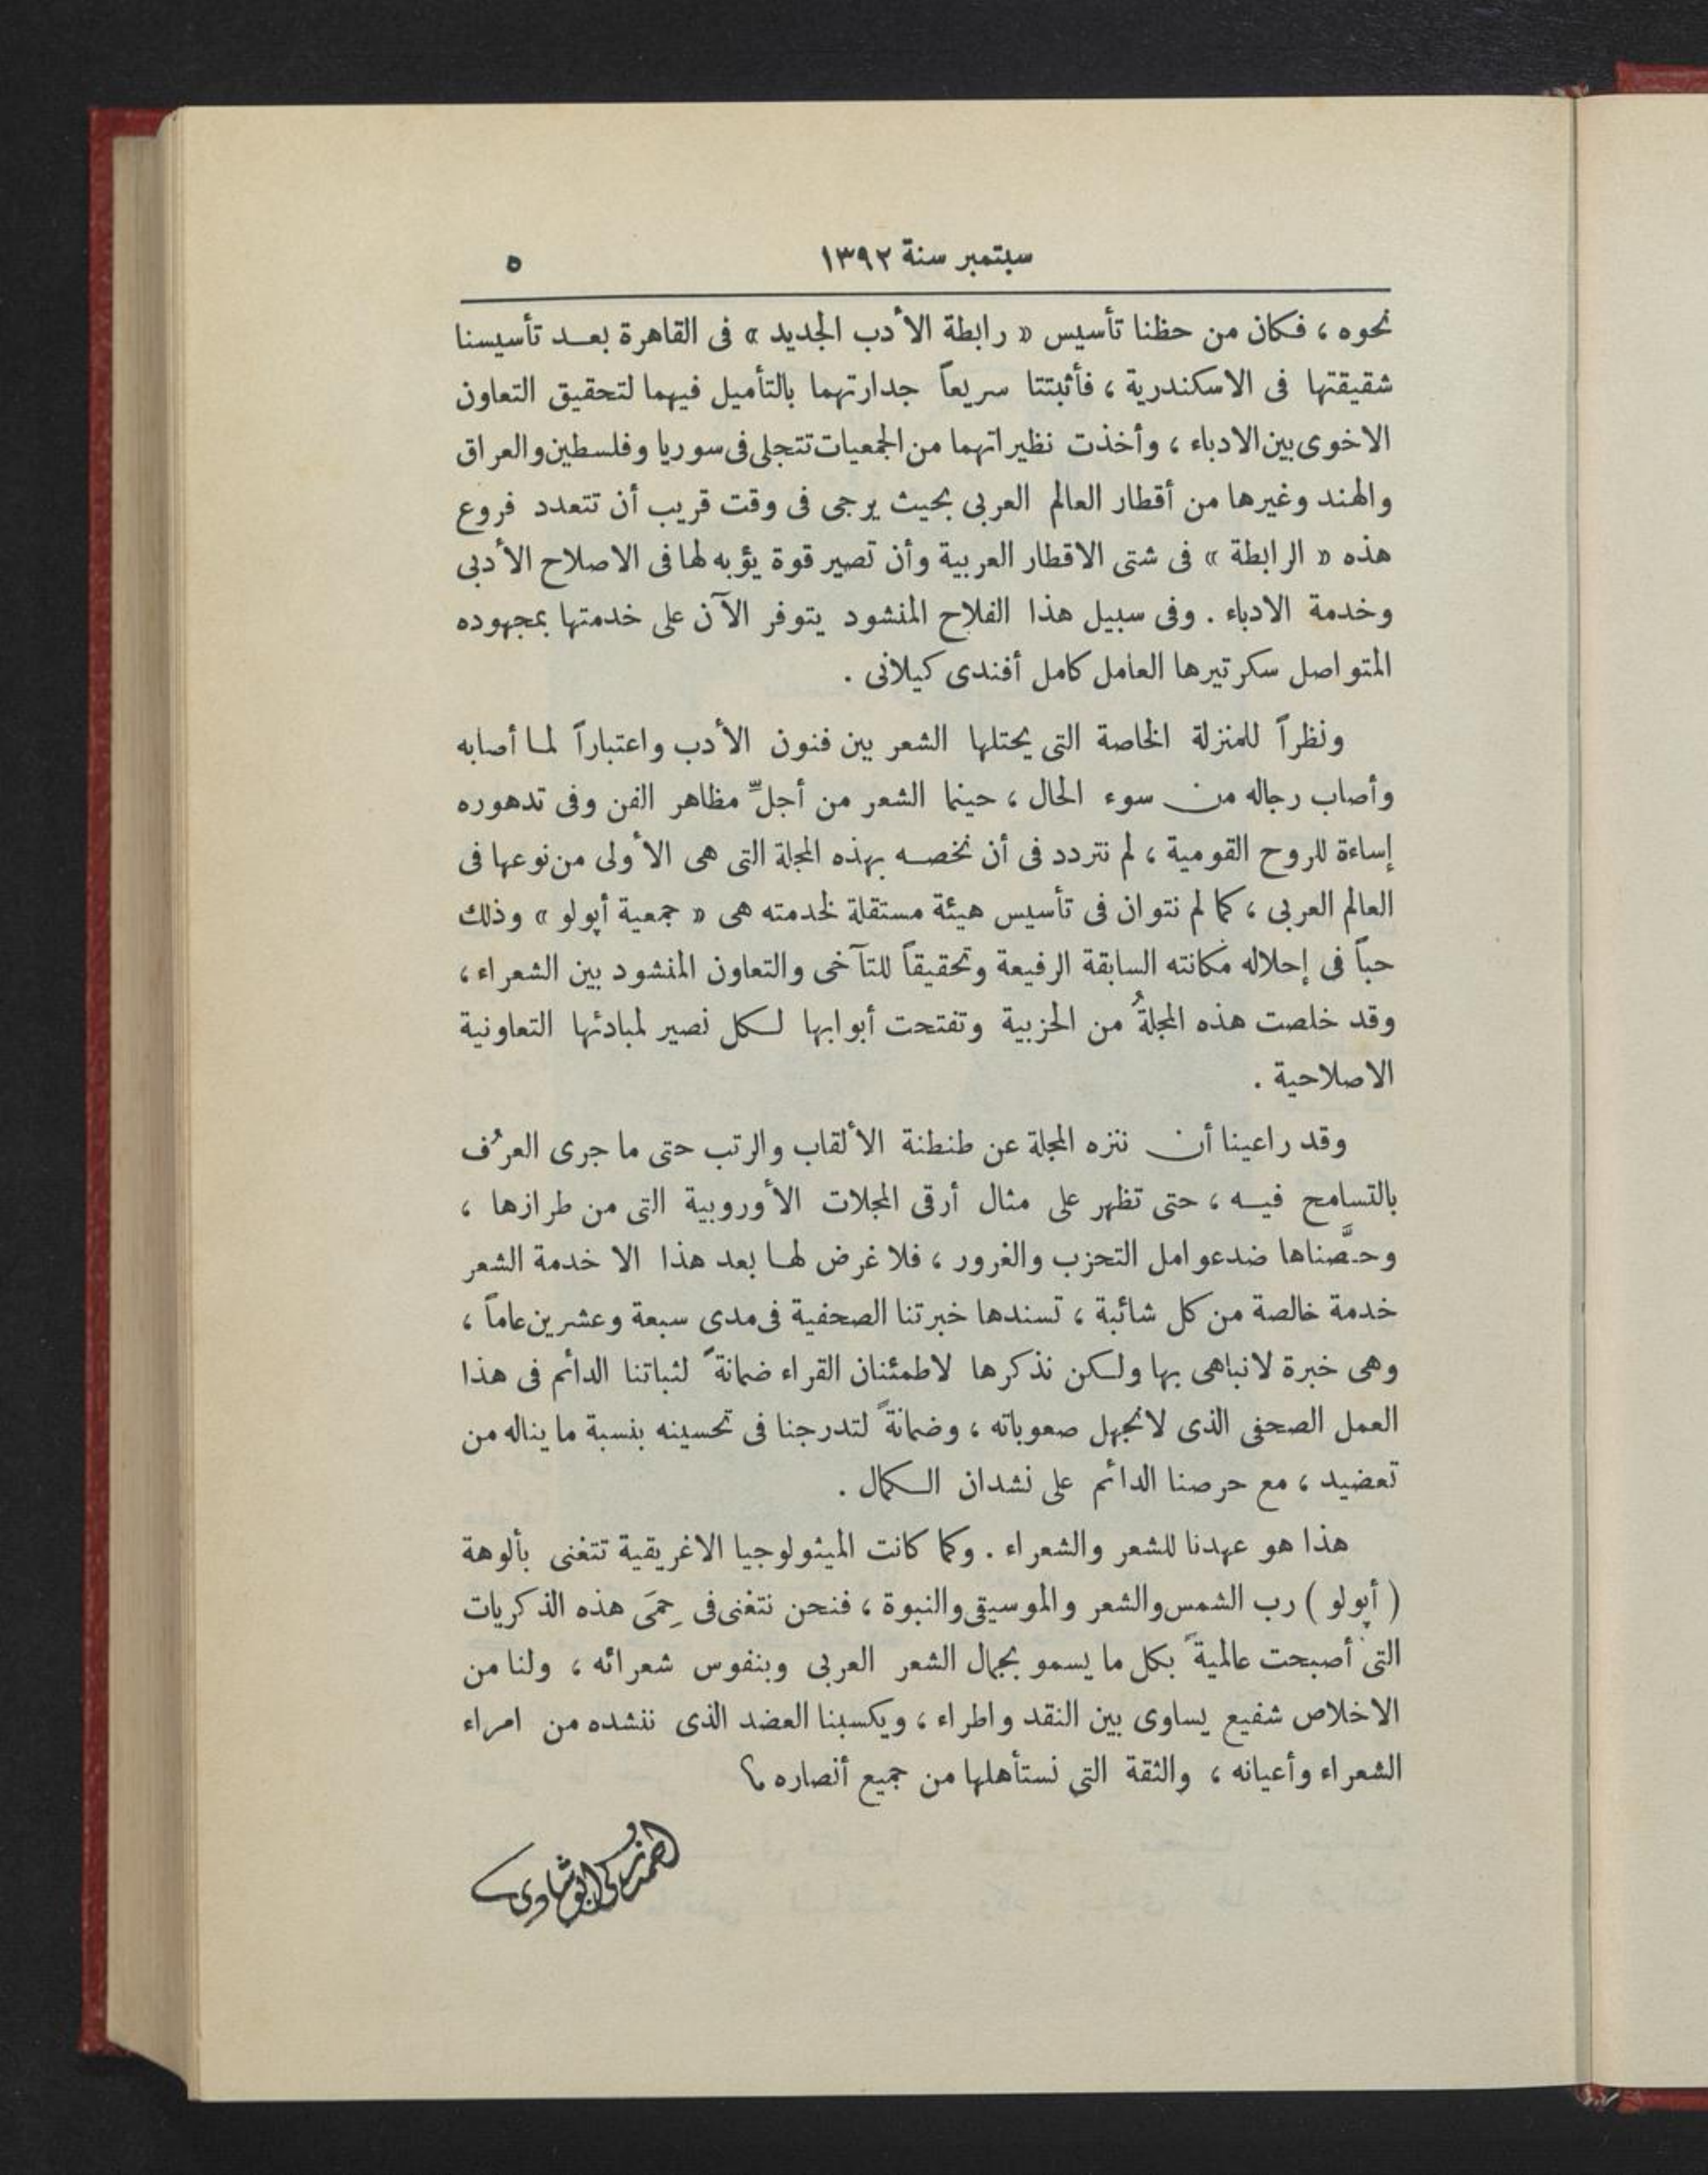 سبتمبر سنة ١٣٩٢
٥
نحوه ، فكان من حظنا تأسيس « رابطة الأدب الجديد » فى القاهرة بعد تأسيسنا
شقيقتها فى الاسكندرية ، فأثبتتا سريعاً جدارتهما بالتأميل فيهما لتحقيق التعاون
الاخوى بين الادباء ، وأخذت نظيراتهما من الجمعيات تتجلى فى سوريا وفلسطين والعراق
والهند وغيرها من أقطار العالم العربى بحيث يرجى فى وقت قريب أن تتعدد فروع
هذه « الرابطة » فى شتى الاقطار العربية وأن تصير قوة يؤبه لها فى الاصلاح الأدبى
وخدمة الادباء . وفى سبيل هذا الفلاح المنشود يتوفر الآن على خدمتها بمجهوده
المتواصل سكرتيرها العامل كامل أفندى كيلانى .
ونظراً للمنزلة الخاصة التى يحتلها الشعر بين فنون الأدب واعتباراً لما أصابه
وأصاب رجاله من سوء الحال ، حينما الشعر من أجلِّ مظاهر الفن وفى تدهوره
إساءة للروح القومية ، لم نتردد فى أن نخصه بهذه المجلة التى هى الأولى من نوعها فى
العالم العربى ، كما لم نتوان فى تأسيس هيئة مستقلة لخدمته هى « جمعية أپولو » وذلك
حباً فى إحلاله مكانته السابقة الرفيعة وتحقيقاً للتآخى والتعاون المنشود بين الشعراء ،
وقد خلصت هذه المجلةُ من الحزبية وتفتحت أبوابها لكل نصير لمبادئها التعاونية
الاصلاحية .
وقد راعينا أن ننزه المجلة عن طنطنة الألقاب والرتب حتى ما جرى العرْف
بالتسامح فيه ، حتى تظهر على مثال أرقى المجلات الأوروبية التى من طرازها ،
وحصَّناها ضد عوامل التحزب والغرور ، فلا غرض لها بعد هذا الا خدمة الشعر
خدمة خالصة من كل شائبة ، تسندها خبرتنا الصحفية فى مدى سبعة وعشرين عاماً ،
وهى خبرة لا نباهى بها ولكن نذكرها لاطمئنان القراء ضمانةً لثباتنا الدائم فى هذا
العمل الصحفى الذى لا نجهل صعوباته ، وضمانةً لتدرجنا فى تحسينه بنسبة ما يناله من
تعضيد ، مع حرصنا الدائم على نشدان الكمال .
هذا هو عهدنا للشعر والشعراء . وكما كانت الميثولوجيا الاغريقية تتغنى بألوهة
( أپولو ) رب الشمس والشعر والموسيقى والنبوة ، فنحن نتغنى فى حِمَى هذه الذكريات
التى أصبحت عالميةً بكل ما يسمو بجمال الشعر العربى وبنفوس شعرائه ، ولنا من
الاخلاص شفيع يساوى بين النقد واطراء ، ويكسبنا العضد الذى ننشده من امراء
الشعراء وأعيانه ، والثقة التى نستأهلها من جميع أنصاره ؟
احمد زكى ابو شادى